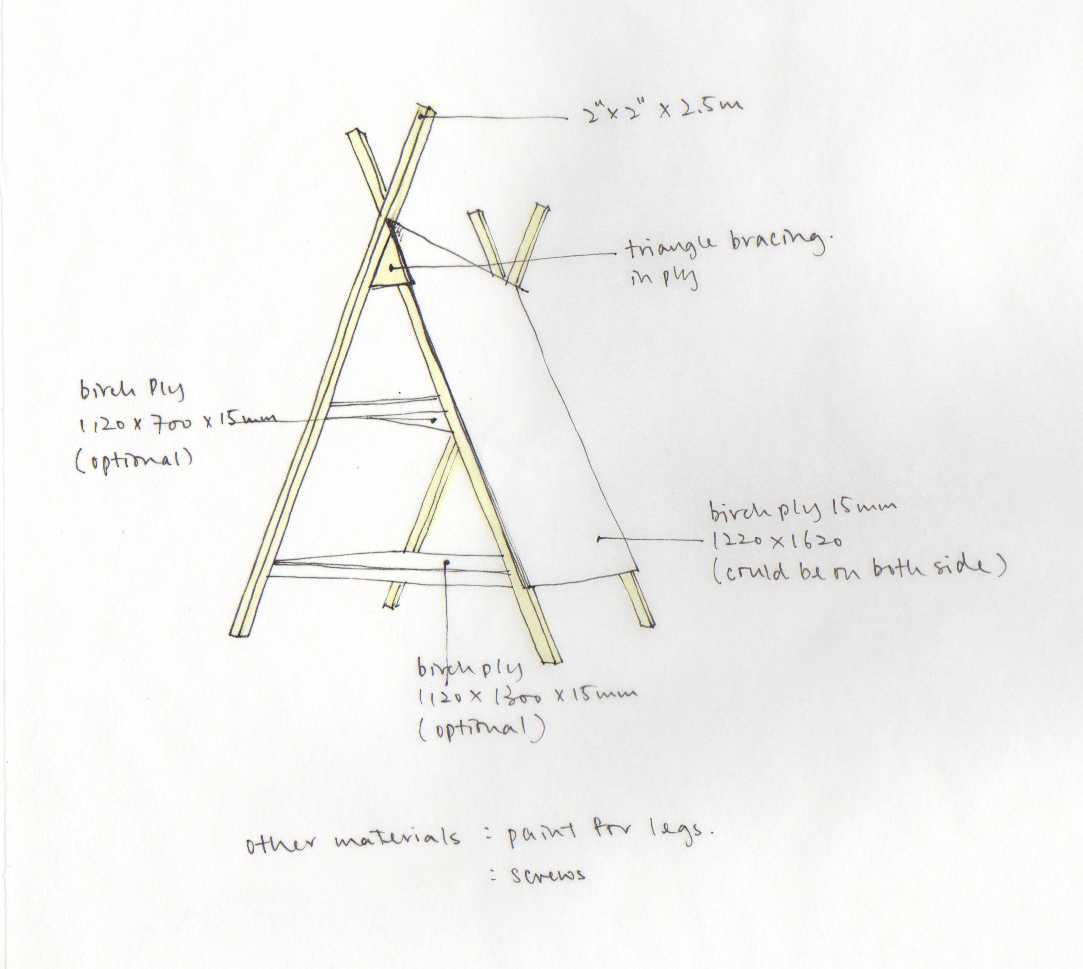 2" x 2" x 2.5m
triangle bracing.
in ply
birch Ply
1120 x 700 x 15mm
(optional)
birch ply 15mm
1220 x 1620
(could be on both side)
birch ply
1120 x 1300 x 15mm
(optional)
other materials : paint for legs.
: screws